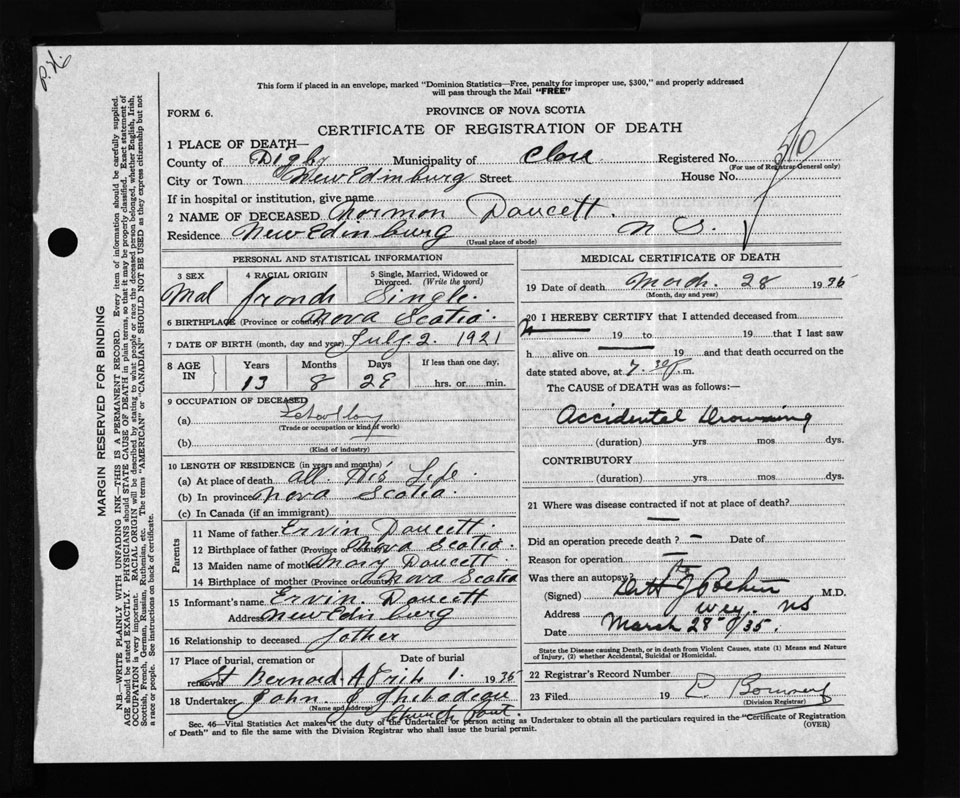 P.H.
This form if placed in an envelope, marked "Dominion Statistics—Free, penalty for improper use, $300," and properly addressed
will pass through the Mail "FREE"
FORM 6.
PROVINCE OF NOVA SCOTIA
CERTIFICATE OF REGISTRATION OF DEATH
1 PLACE OF DEATH—
County of Digby Municipality of Clare Registered No. 510
(For use of Registrar General only)
City or Town New Edinburg Street House No.
If in hospital or institution, give name
2 NAME OF DECEASED Normon Doucett.
Residence New Edinburg N S.
(Usual place of abode)
PERSONAL AND STATISTICAL INFORMATION
3 SEX 4 RACIAL ORIGIN 5 Single, Married, Widowed or Divorced. (Write the word)
Mal french Single.
6 BIRTHPLACE (Province or country) Nova Scotia
7 DATE OF BIRTH (month, day and year) July 2. 1921
8 AGE IN Years Months Days If less than one day,
13 8 28 hrs. or min.
9 OCCUPATION OF DECEASED
(a) School boy
(Trade or occupation or kind of work)
(b)
(Kind of industry)
10 LENGTH OF RESIDENCE (in years and months)
(a) At place of death all His Life
(b) In province Nova Scotia.
(c) In Canada (if an immigrant)
Parents
11 Name of father Ervin Doucett.
12 Birthplace of father (Province or country) Nova Scotia.
13 Maiden name of mother Mary Doucett
14 Birthplace of mother (Province or country) Nova Scotia
15 Informant's name Ervin Doucett
Address New Edinburg
16 Relationship to deceased father
17 Place of burial, cremation or removal Date of burial
St Bernard April 1. 1935
18 Undertaker John E Thibodeau
(Name and address)
Church Point.
MEDICAL CERTIFICATE OF DEATH
19 Date of death March. 28 1935
(Month, day and year)
20 I HEREBY CERTIFY that I attended deceased from
19 to 19 that I last saw
h alive on 19 and that death occurred on the
date stated above, at 7.30 P.m.
The CAUSE of DEATH was as follows:—
Accidental Drowning
(duration) yrs. mos. dys.
CONTRIBUTORY
(duration) yrs. mos. dys.
21 Where was disease contracted if not at place of death?
—
Did an operation precede death? – Date of
Reason for operation —
Was there an autopsy?
(Signed) M.D.
Address Wey. NS
Date March 28 /35.
State the Disease causing Death, or in death from Violent Causes, state (1) Means and Nature
of Injury, (2) whether Accidental, Suicidal or Homicidal.
22 Registrar's Record Number
23 Filed 19
(Division Registrar)
Sec. 46—Vital Statistics Act makes it the duty of the Undertaker or person acting as Undertaker to obtain all the particulars required in the "Certificate of Registration
of Death" and to file the same with the Division Registrar who shall issue the burial permit. (OVER)
MARGIN RESERVED FOR BINDING
N.B.—WRITE PLAINLY WITH UNFADING INK—THIS IS A PERMANENT RECORD. Every item of information should be carefully supplied.
AGE should be stated EXACTLY. PHYSICIANS should STATE CAUSE OF DEATH in plain terms, so that it may be properly classified. Exact statement of
OCCUPATION is very important. RACIAL ORIGIN will be described by stating to what people or race the deceased person belonged, whether English, Irish,
Scottish, French, German, Russian, Ruthenian, etc. The terms "AMERICAN" or "CANADIAN" SHOULD NOT BE USED as they express citizenship but not
a race or people. See instructions on back of certificate.